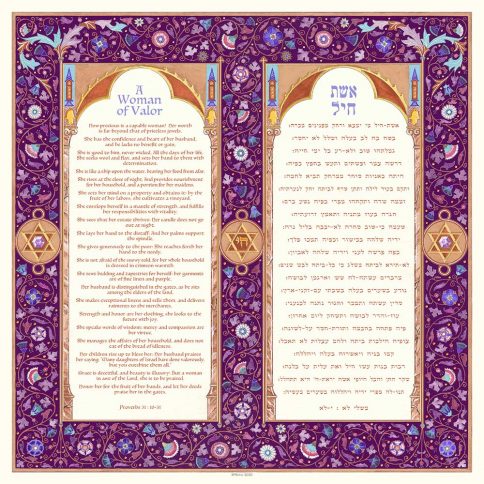 A
Woman
of Valor
How precious is a capable woman! Her worth
is far beyond that of precious jewels.
She has the confidence and heart of her husband,
and he lacks no benefit or gain.
She is good to him, never wicked. All the days of her life,
She seeks wool and flax, and sets her hand to them with
determination.
She is like a ship upon the water, bearing her food from afar.
She rises at the dawn of night; And provides nourishment
for her household, and a portion for her maidens.
She sets her mind on a property and obtains it; by the
fruit of her labors, she cultivates a vineyard.
She envelops herself in a mantle of strength, and fulfills
her responsibilities with vitality.
She sees that her estate thrives; Her candle does not go
out at night.
She lays her hand to the distaff; And her palms support
the spindle.
She gives generously to the poor; She reaches forth her
hand to the needy.
She is not afraid of the snowy cold, for her whole household
is dressed in crimson warmth.
She sews bedding and tapestries for herself; her garments
are of fine linen and purple.
Her husband is distinguished in the gates, as he sits
among the elders of the land.
She makes exceptional linens and sells them, and delivers
raiments to the merchants.
Strength and honor are her clothing; she looks to the
future with joy.
She speaks words of wisdom; mercy and compassion are
her virtue.
She manages the affairs of her household, and does not
eat of the bread of idleness.
Her children rise up to bless her; Her husband praises
her saying "Many daughters of Israel have done valorously
but you outshine them all."
Grace is deceitful, and beauty is illusory; But a woman
in awe of the Lord, she is to be praised.
Honor her for the fruit of her hands, and let her deeds
praise her in the gates.
Proverbs 31 : 10-31
אשת
חיל
אשת-חיל מי ימצא ורחק מפנינים מכרה:
בטח בה לב בעלה ושלל לא יחסר:
גמלתהו טוב ולא-רע כל ימי חייה:
דרשה צמר ופשתים ותעש בחפץ כפיה:
היתה כאניות סוחר ממרחק תביא לחמה:
ותקם בעוד לילה ותתן טרף לביתה וחק לנערתיה:
זממה שדה ותקחהו מפרי כפיה נטע כרם:
חגרה בעוז מתניה ותאמץ זרועתיה:
טעמה כי-טוב סחרה לא-יכבה בליל נרה:
ידיה שלחה בכישור וכפיה תמכו פלך:
כפה פרשה לעני וידיה שלחה לאביון:
לא-תירא לביתה משלג כי כל-ביתה לבש שנים:
מרבדים עשתה-לה שש וארגמן לבושה:
נודע בשערים בעלה בשבתו עם-זקני-ארץ:
סדין עשתה ותמכר וחגור נתנה לכנעני:
עוז-והדר לבושה ותשחק ליום אחרון:
פיה פתחה בחכמה ותורת-חסד על-לשונה:
צופיה הליכות ביתה ולחם עצלות לא תאכל:
קמו בניה ויאשרוה בעלה ויהללה:
רבות בנות עשו חיל ואת עלית על כלנה:
שקר החן והבל היופי אשה יראת-ה' היא תתהלל:
תנו-לה מפרי ידיה ויהללוה בשערים מעשיה:
משלי לא : י-לא